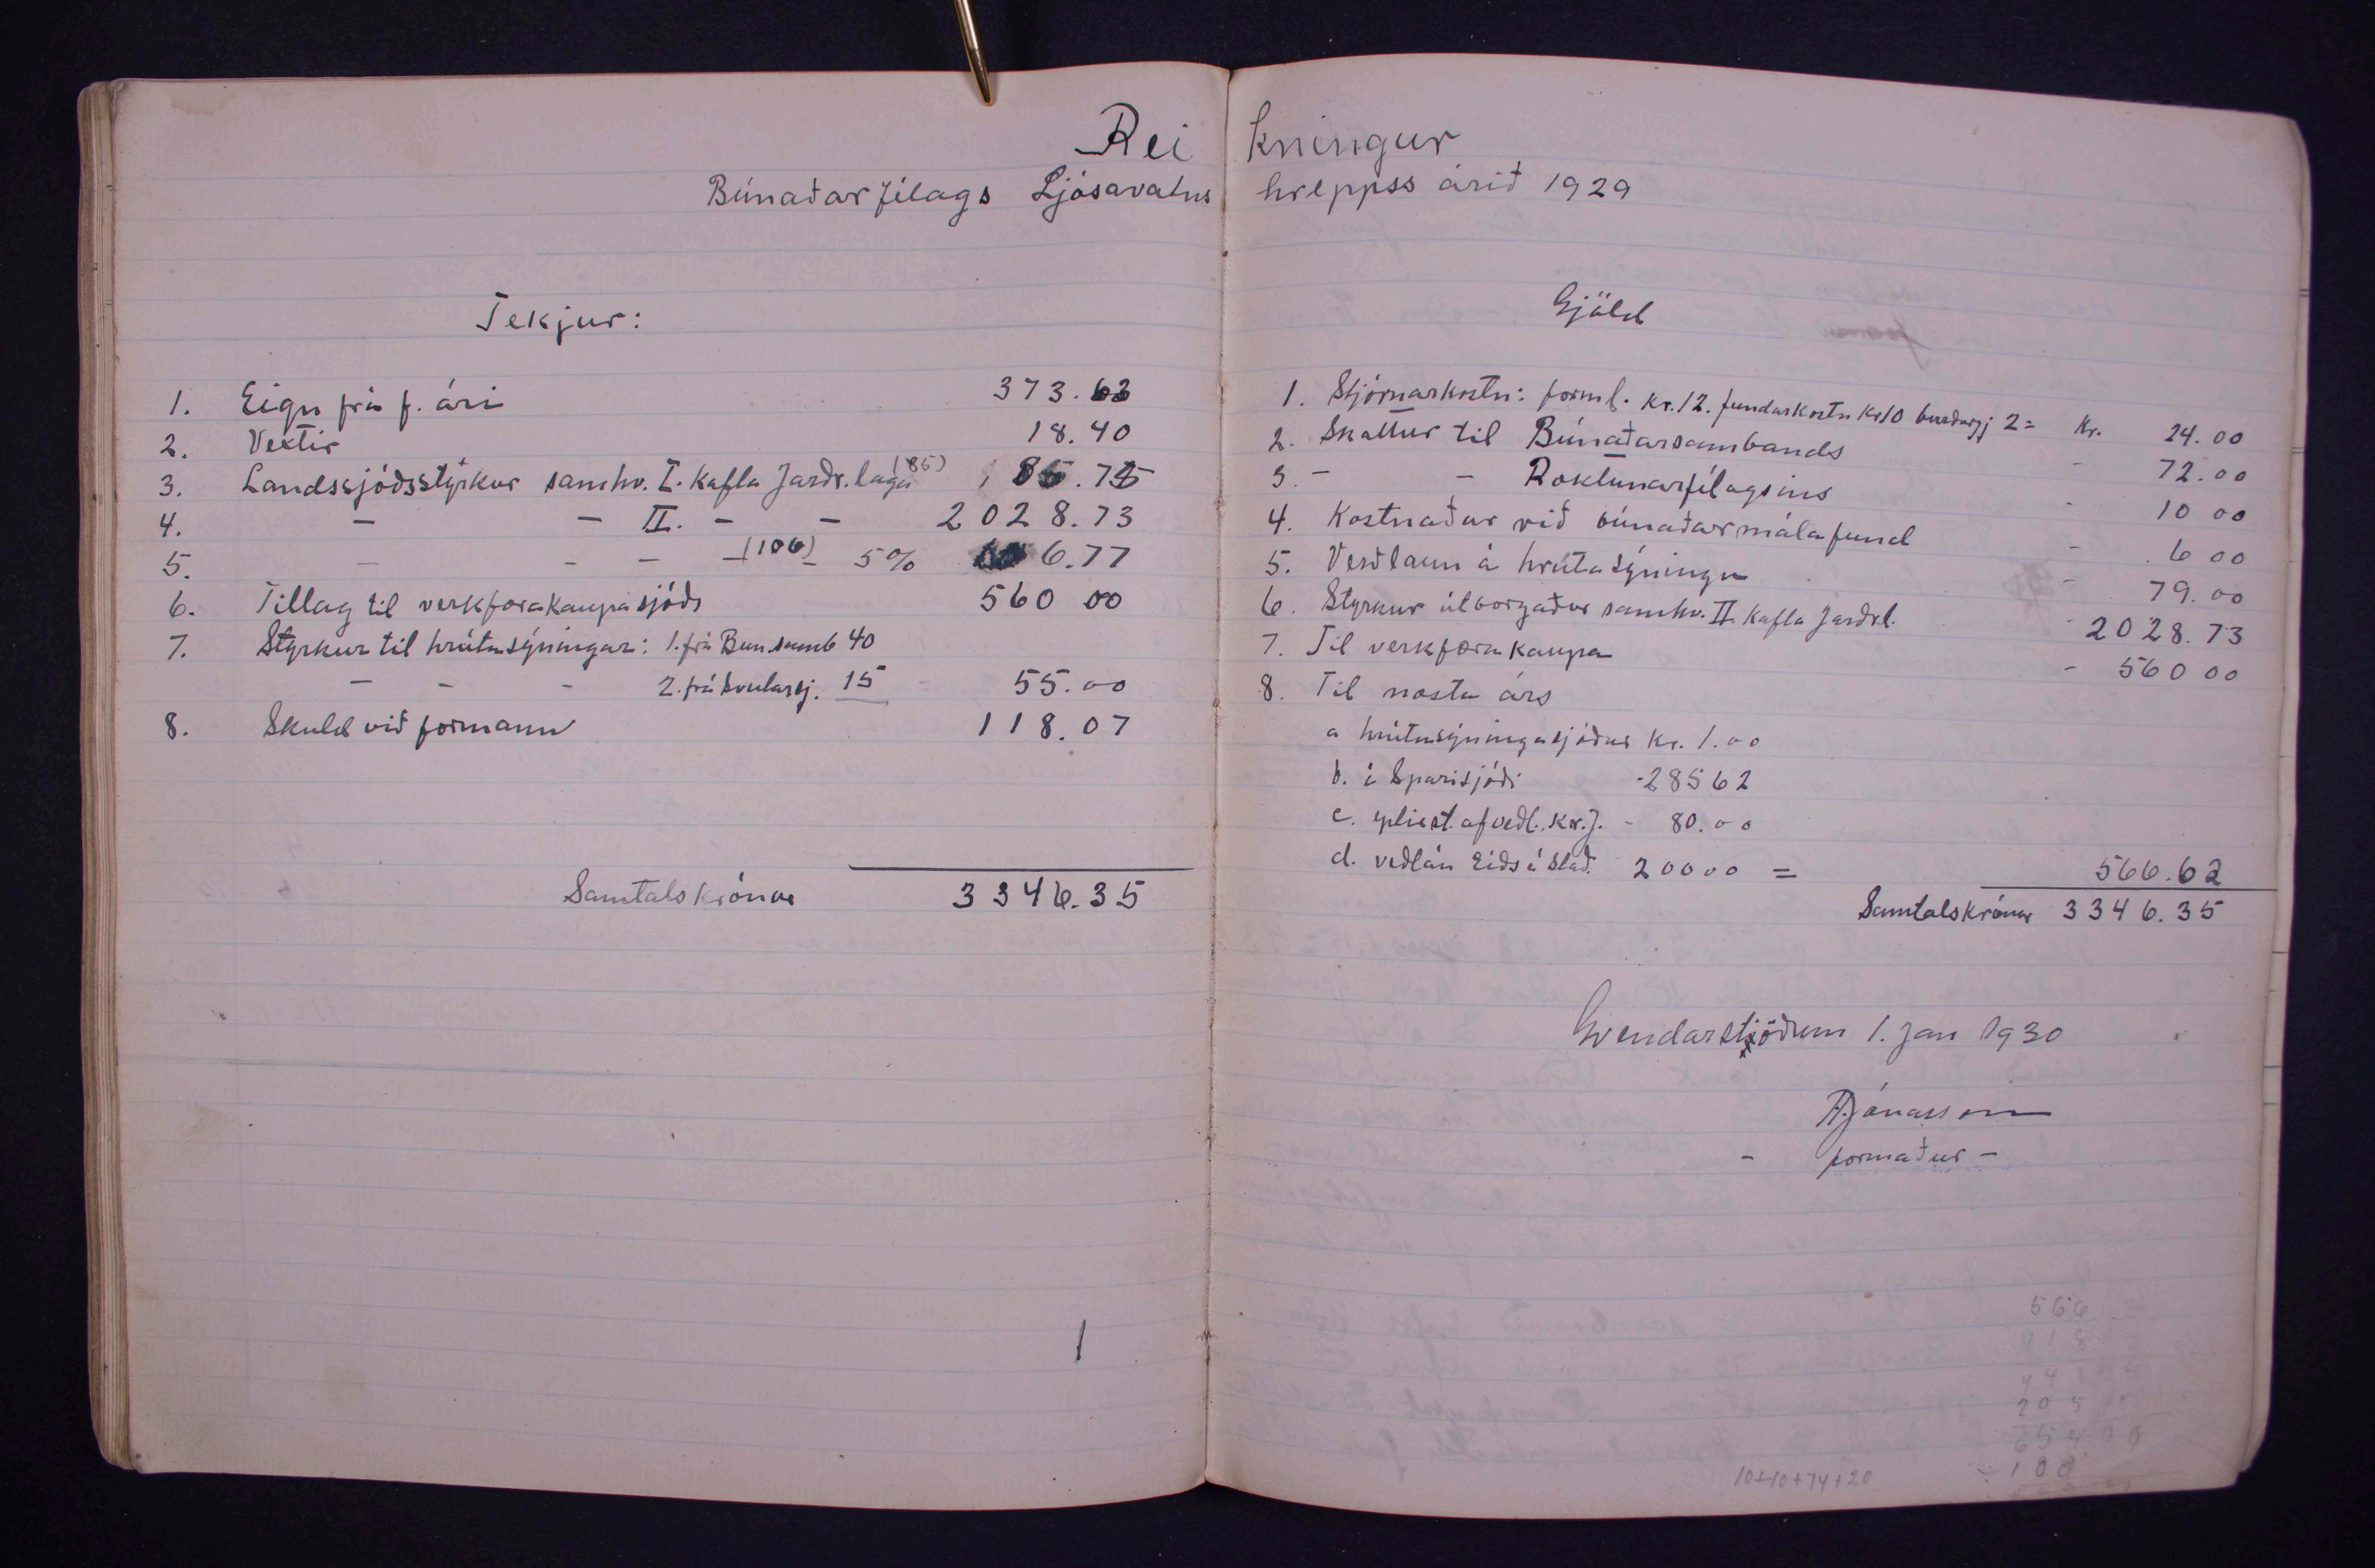 Reikningur
Búnaðarfélags Ljósavatnshreppss árið 1929
Tekjur:
1. Eign frá f. ári 373.63
2. Vextir 18.40
3. Landssjóðsstyrkur samhv. I. Kafla Jarðr. laga (85) 85.75
4. — — II. — — 2028.73
5. — — — (106) — 5% 6.77
6. Tillag til verkfærakaupasjóðs 560 00
7. Styrkur til hrútasýningar: 1. frá Bún.samb 40
— — — 2. frá 15 — 55.00
8. Skuld við formann 118.07
Samtals krónur 3346.35
1
Gjöld
1. Stjórnarkostn: forml. Kr. 12. fundarkostn Kr 10 burðargj 2 = Kr. 24.00
2. Skattur til Búnaðarsambands - 72.00
3. — — Ræktunarfélagsins - 10 00
4. Kostnaður við búnaðarmálafund - 6 00
5. Verðlaun á hrútasýningu - 79.00
6. Styrkur útborgaður samhv. II. Kafla Jarðr.l. - 2028.73
7. Til verkfærakaupa - 560 00
8. Til næsta árs
a hrútasýningasjóður Kr. 1.00
b. í Sparisjóði - 285 62
c. af veðl. Kr. J. - 80.00
d. veðlán Eiðs á Stað. 200 00 = 566.62
Samtals krónur 3346.35
1. Jan 1930
Jónasson
- formaður -
566
918
205
654 00
100
10+10+74+20